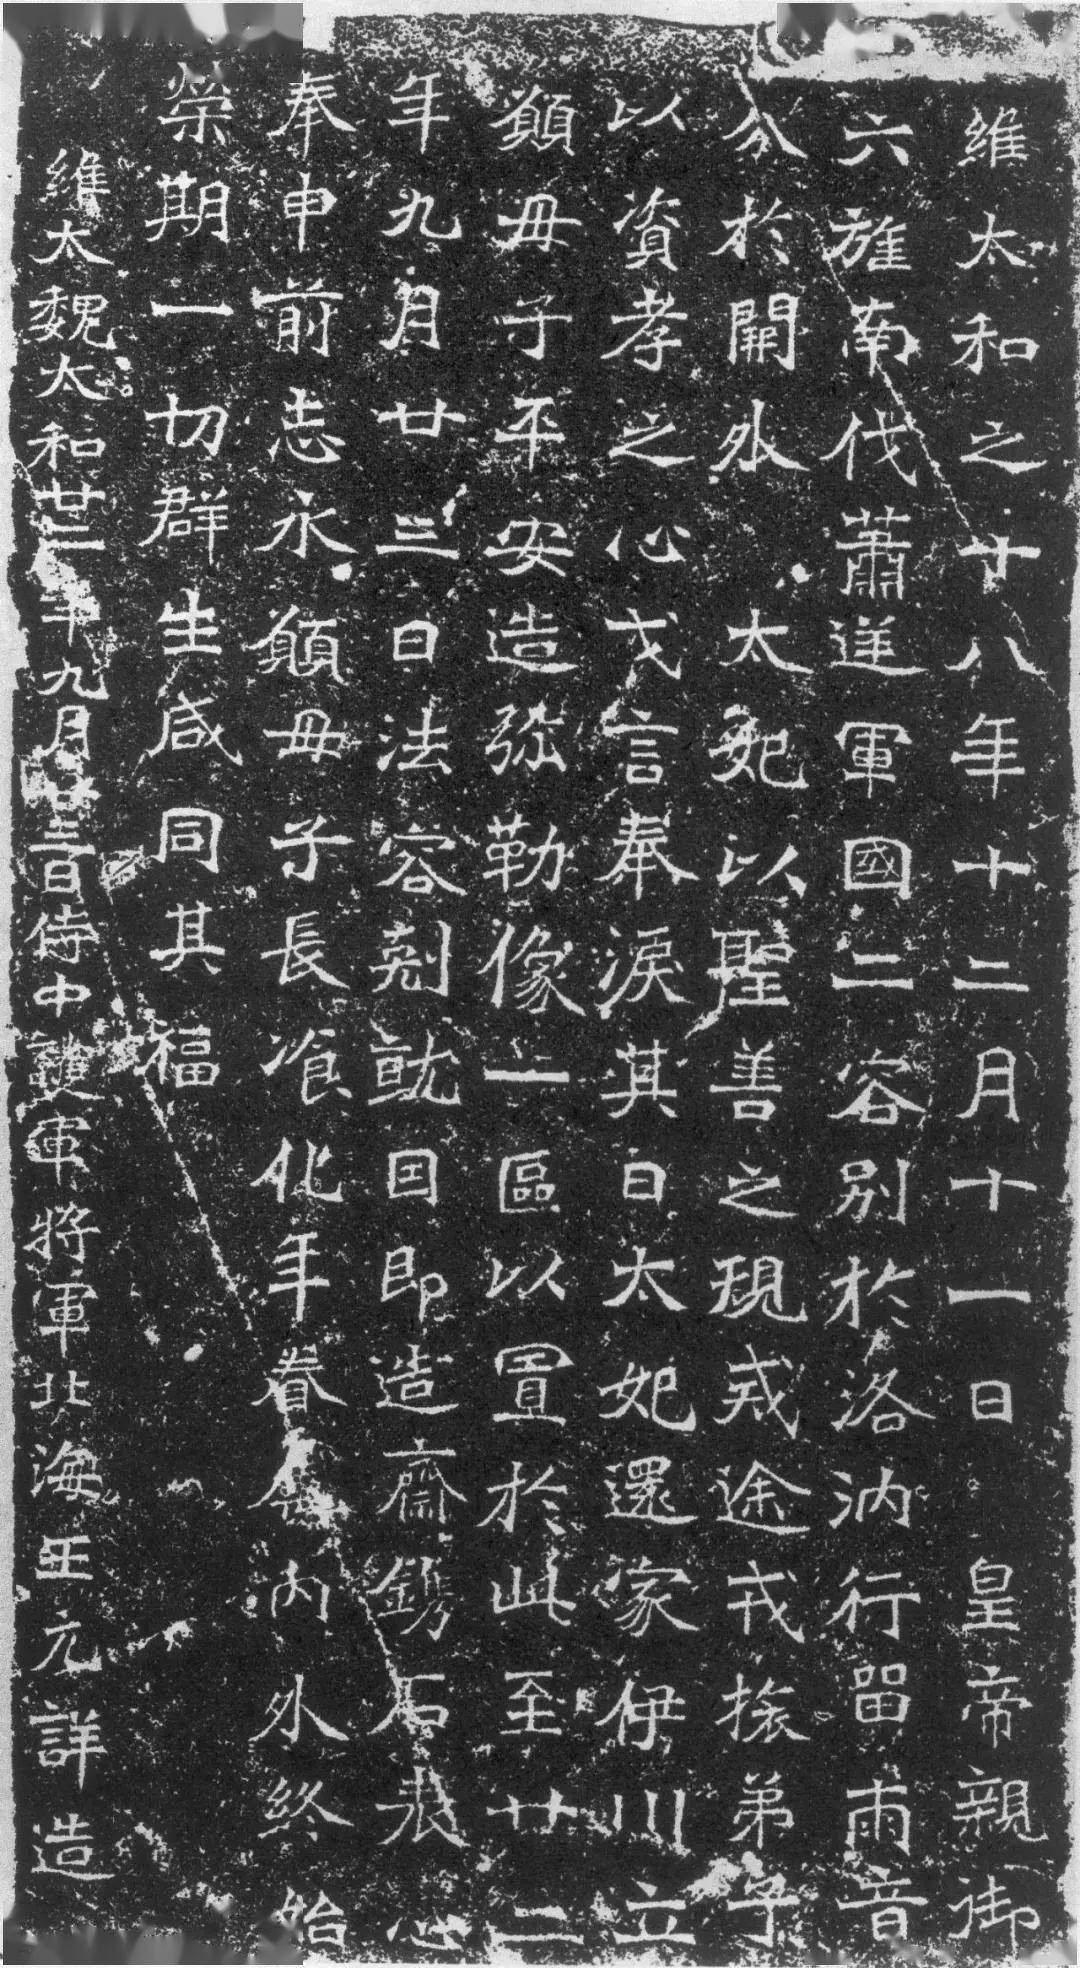 維太和之十八年十二月十一日皇帝親御
六旌南伐蕭逆軍國二容別於洛汭行留兩音
分於闕外太妃以聖善之規戒途戎旅弟子
以資孝之心戈言奉淚其日太妃還家伊川立
願母子平安造弥勒像一區以置於此至廿二
年九月廿三日法容剋就因即造齋鐫石表心
奉申前志永願母子長瀹化年眷內外終始
榮期一切群生咸同其福
維太魏太和廿二年九月廿三日侍中護軍將軍北海王元詳造